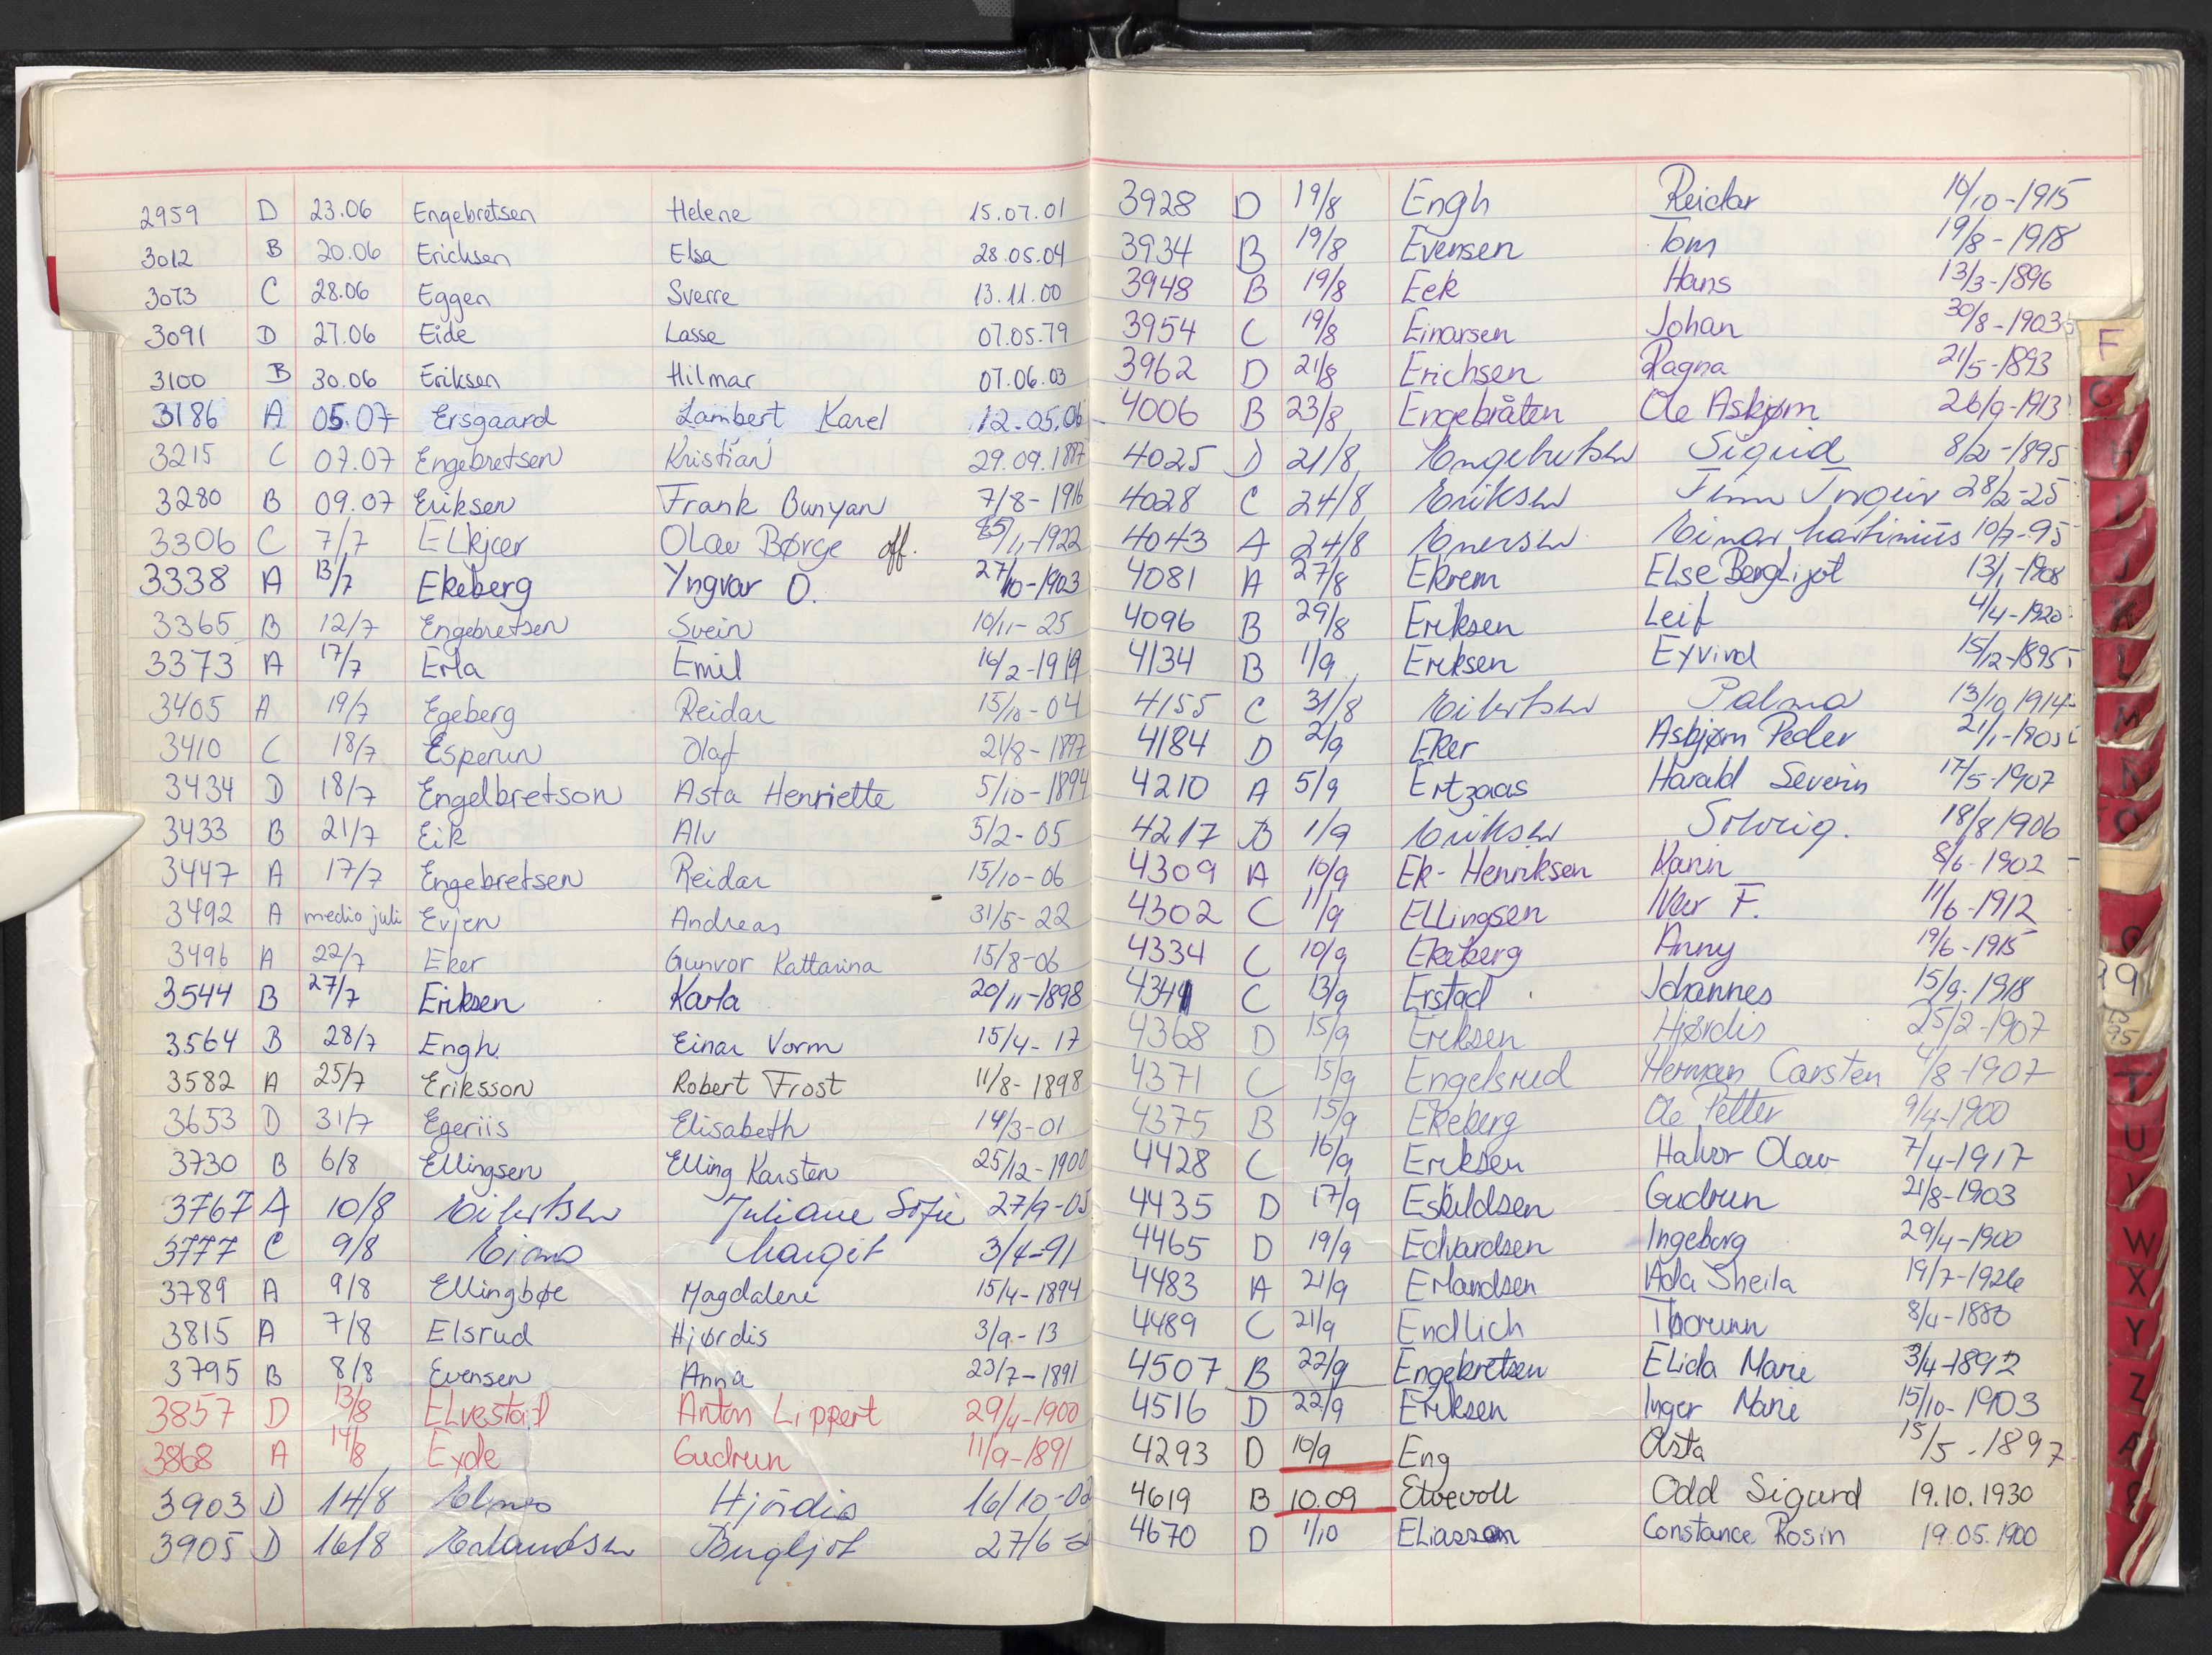 2959 D 23.06 Engebretsen Helene 15.07.01
3012 B 20.06 Ericksen Elsa 28.05.04
3073 C 28.06 Eggen Sverre 13.11.00
3091 D 27.06 Eide Lasse 07.05.79
3100 B 30.06 Eriksen Hilmar 07.06.03
3186 A 05.07 Ersgaard Lambert Karel 12.05.06
3215 C 07.07 Engebretsen Kristian 29.09.1887
3280 B 09.07 Eriksen Frank Bunyan 7/8-1916
3306 C 7/7 Elkjær Olav Børge off. /1-1922
3338 A 13/7 Ekeberg Yngvar O. 27/10-1903
3365 B 12/7 Engebretsen Svein 10/11-25
3373 A 17/7 Erla Emil 14/2-1919
3405 A 19/7 Egeberg Reidar 15/10-04
3410 C 18/7 Esperun Olaf 21/8-1897
3434 D 18/7 Engelbretson Asta Henriette 5/10-1894
3433 B 21/7 Eik Alv 5/2-05
3447 A 17/7 Engebretsen Reidar 15/10-06
3492 A medio juli Evjen Andreas 31/5-22
3496 A 22/7 Eker Gunvor Kattarina 15/8-06
3544 B 27/7 Eriksen Karla 20/11-1898
3564 B 28/7 Engh Einar Vorm 15/4-17
3582 A 25/7 Eriksson Robert Frost 11/8-1898
3653 D 31/7 Egeriis Elisabeth 14/3-01
3730 B 6/8 Ellingsen Elling Karsten 25/12-1900
3767 A 10/8 Eilertsen Juliane Sofie 27/9-05
3777 C 9/8 Margit 3/4-91
3789 A 9/8 Ellingbøe Magdalene 15/4-1894
3815 A 7/8 Elsrud Hjørdis 3/9-13
3795 B 8/8 Evensen Anna 23/7-1891
3857 D 13/8 Elvestad Anton Lippert 29/4-1900
3868 A 14/8 Eyde Gudrun 11/9-1891
3903 D 14/8 Hjördis 16/10-02
3905 D 16/8 Erlandsen Bergljot 27/6
3928 D 19/8 Engh Reidar 14/10-1915
3934 B 19/8 Evensen Tom 19/8-1918
3948 B 19/8 Eek Hans 13/3-1896
3954 C 19/8 Einarsen Johan 30/8-1903
3962 D 21/8 Erichsen Ragna 21/5-1893
4006 B 23/8 Engebråten Ole Asbjørn 26/9-1913
4025 D 21/8 Engebretsen Sigrid 8/20-1895
4028 C 24/8 Eriksen Finn 28/2-25
4043 A 24/8 Enersen Einar Martinius 10/7-95
4081 A 27/8 Ekrem Else Bergljot 13/1-1908
4096 B 29/8 Eriksen Leif 4/4-1920
4134 B 1/9 Eriksen Eyvind 15/12-1895
4155 C 31/8 Eilertsen Palma 13/10 1914
4184 D 2/9 Eker Asbjørn Peder 21/1-1905
4210 A 5/9 Ertzaas Harald Severin 17/5-1907
4217 B 1/9 Eriksen Solveig. 18/8 1906
4309 A 10/9 Ek-Henriksen Karin 8/6-1902
4302 C 11/9 Ellingsen Iver F. 11/6-1912
4334 C 10/9 Ekeberg Anny 19/6-1915
4341 C 13/9 Erstad Johannes 15/9-1918
4368 D 15/9 Eriksen Hjørdis 25/2-1907
4371 C 15/9 Engelsrud Herman Carsten 4/8-1907
4375 B 15/9 Ekeberg Ole Petter 9/4-1900
4428 C 16/9 Eriksen Halvor Olav 7/4-1917
4435 D 17/9 Eskildsen Gudrun 21/8-1903
4465 D 19/9 Edvardsen Ingeborg 29/4-1900
4483 A 21/9 Erlandsen Ada Sheila 19/7-1926
4489 C 21/9 Endlich Thorunn 8/4-1880
4507 B 22/9 Engebretsen Elida Marie 3/4-1892
4516 D 22/9 Eriksen Inger Marie 15/10-1903
4293 D 10/9 Eng Asta 15/5-1897
4619 B 10.09 Etvevoll Odd Sigurd 19.10.1930
4670 D 1/10 Eliasson Constance Rosin 19.05.1900
F
G
H
I
J
K
L
M
N
O
T
U
V
W
X
Y
Z